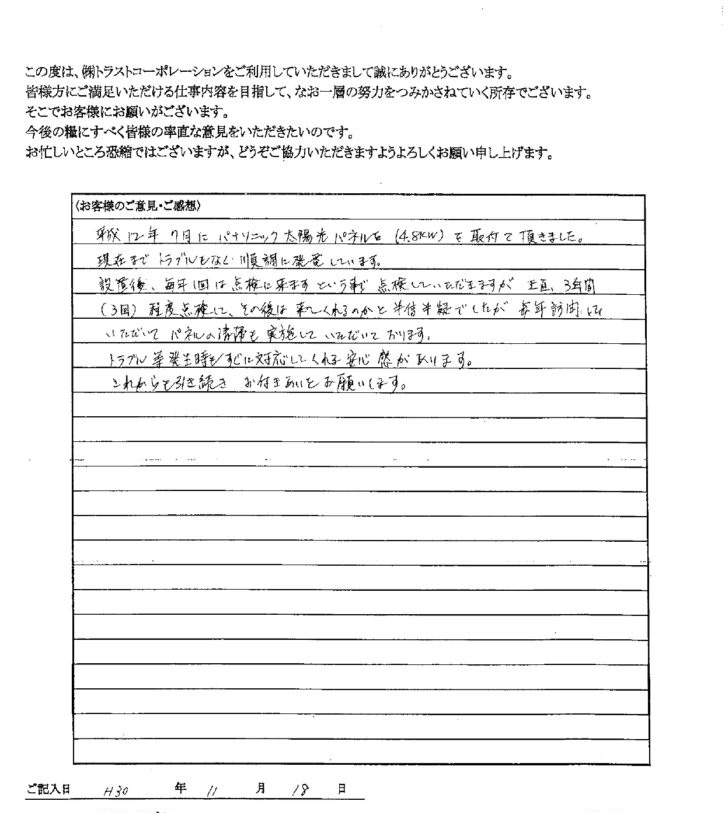 この度は、㈱トラストコーポレーションをご利用していただきまして誠にありがとうございます。
皆様方にご満足いただける仕事内容を目指して、なお一層の努力をつみかさねていく所存でございます。
そこでお客様にお願いがございます。
今後の糧にすべく皆様の率直な意見をいただきたいのです。
お忙しいところ恐縮ではございますが、どうぞご協力いただきますようよろしくお願い申し上げます。
〈お客様のご意見・ご感想〉
平成12年7月にパナソニック太陽光パネルを(4.8KW)を取付て頂きました。
現在までトラブルもなく順調に発電しています。
設置後、毎年1回は点検に来ますという事で点検していただきますが正直、3年間
(3回)程度点検して、その後は来てくれるのかと半信半疑でしたが毎年訪問して
いただいてパネルの清掃も実施していただいております。
トラブル等発生時もすぐに対応してくれる安心感があります。
これからも引き続きお付きあいをお願いします。
ご記入日 H30 年 11 月 18 日